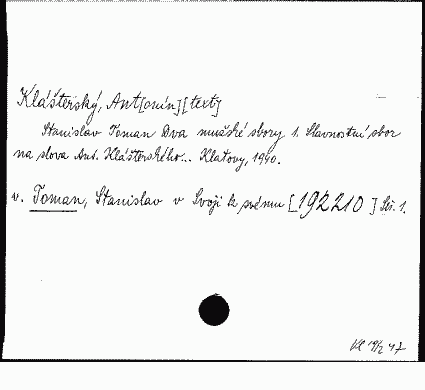 Klášterský, Ant[onín][text]
Stanislav Toman Dva mužské sbory 1. Slavnostní sbor
na slova Ant. Klášterského... Klatovy, 1940.
v. Toman, Stanislav v Svoji k svému [192210] Seš. 1.